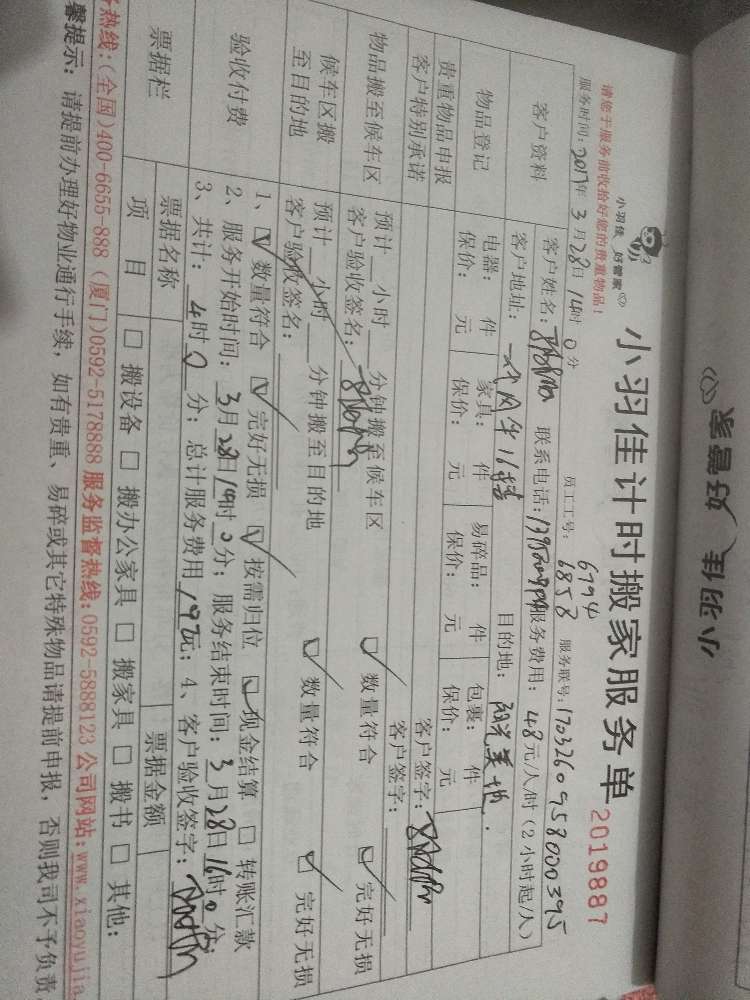 小羽佳 好管家
小羽佳 好管家
小羽佳计时搬家服务单
2019887
请您于服务前收拾好您的贵重物品！
员工工号： 6794 6858
服务联号：1703260958000395
服务时间：2017年 3月 28日 14时 0分
客户资料
客户姓名： 联系电话： 服务费用： 48元/人/时（2小时起/人）
客户地址： 目的地：
物品登记
电器： 件 家具： 件 易碎品： 件 包裹： 件
保价： 元 保价： 元 保价： 元 保价： 元
贵重物品申报
客户签字：
客户特别承诺
客户签字：
物品搬至候车区
预计 小时 分钟搬至候车区 数量符合 完好无损
客户验收签名：
候车区搬至目的地
预计 小时 分钟搬至目的地 数量符合 完好无损
客户验收签名：
验收付费
1、 数量符合 完好无损 按需归位 现金结算 转账汇款
2、服务开始时间： 3月28日14时0分；服务结束时间： 3月28日16时0分；
3、共计： 4时0分；总计服务费用 192元；4、客户验收签字：
票据栏
票据名称 票据金额
项 目 搬设备 搬办公家具 搬家具 搬书 其他：
热线：(全国)400-6655-888 (厦门)0592-5178888 服务监督热线：0592-5888123 公司网站：www.xiaoyujia.
馨提示：请提前办理好物业通行手续，如有贵重、易碎或其它特殊物品请提前申报，否则我司不予负责